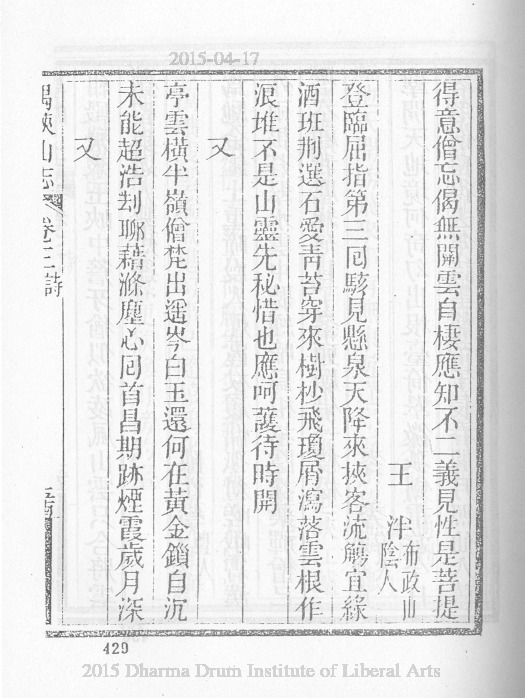 2015-04-17
得意僧忘偈無關雲自棲應知不二義見性是菩提
王泮布政山陰人
登臨屈指第三回駭見懸泉天降來挾客流觴宜綠
酒班荆選石愛靑苔穿來樹杪飛瓊屑瀉落雲根作
浪堆不是山靈先秘惜也應呵護待時開
又
亭雲橫半嶺僧梵出遥岑白玉還何在黃金鎖自沉
未能超浩刦聊藉滌塵心回首昌期跡煙霞歲月深
又
禺峽山志 卷三 詩
429
2015 Dharma Drum Institute of Liberal Arts